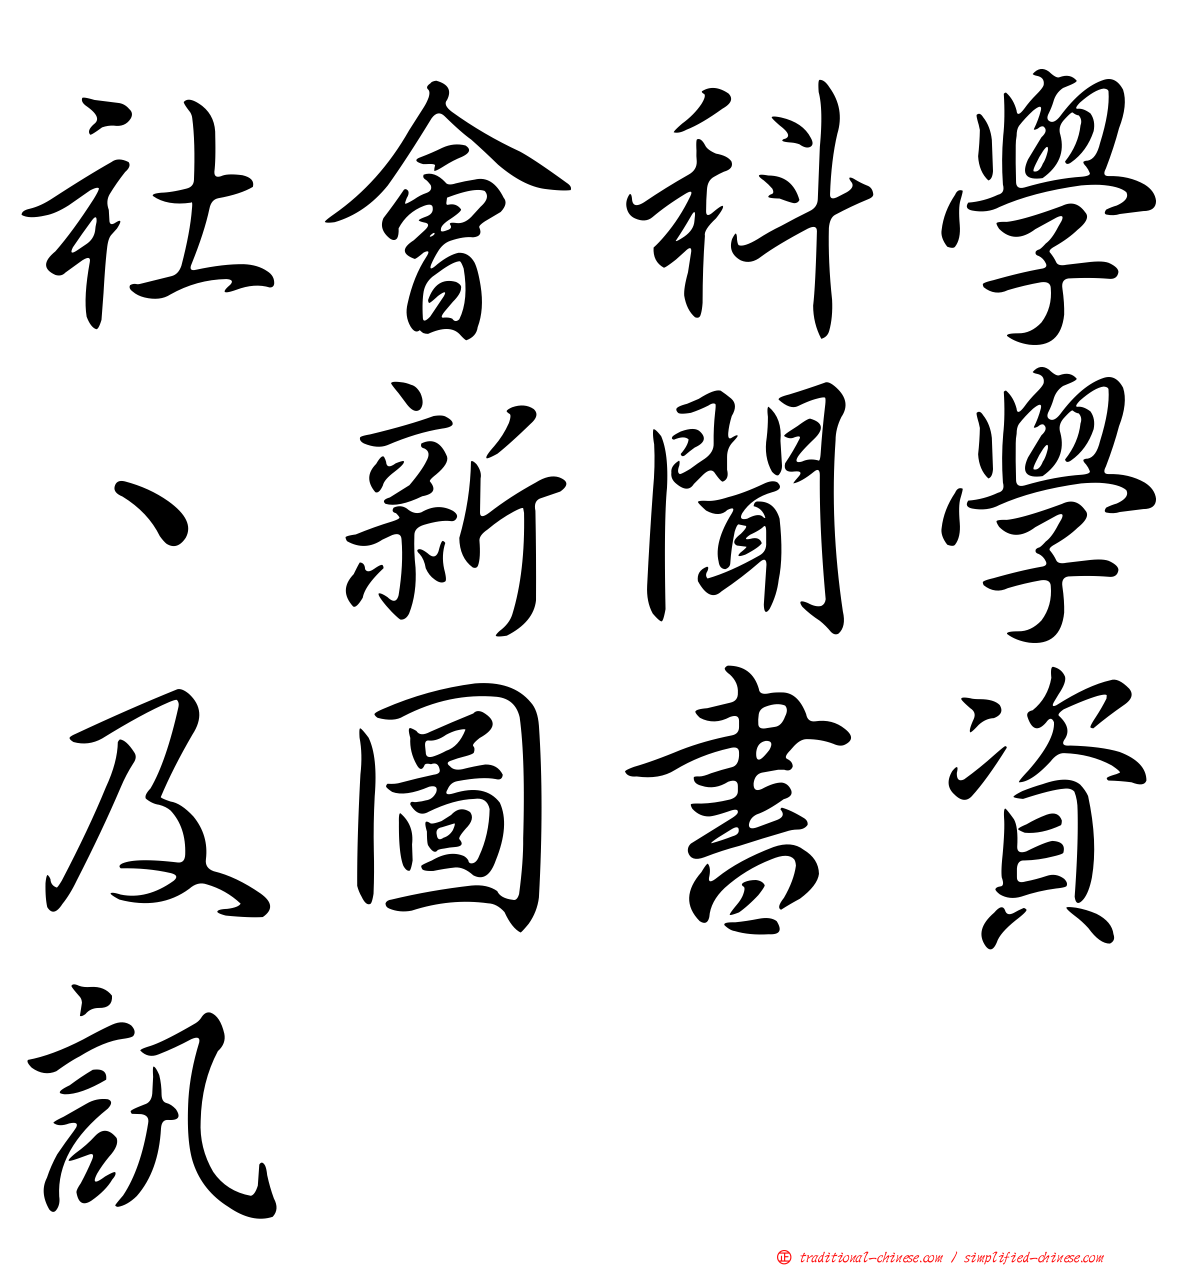 社會科學
、新聞學
及圖書資
訊
㊣ traditional-chinese.com / simplified-chinese.com